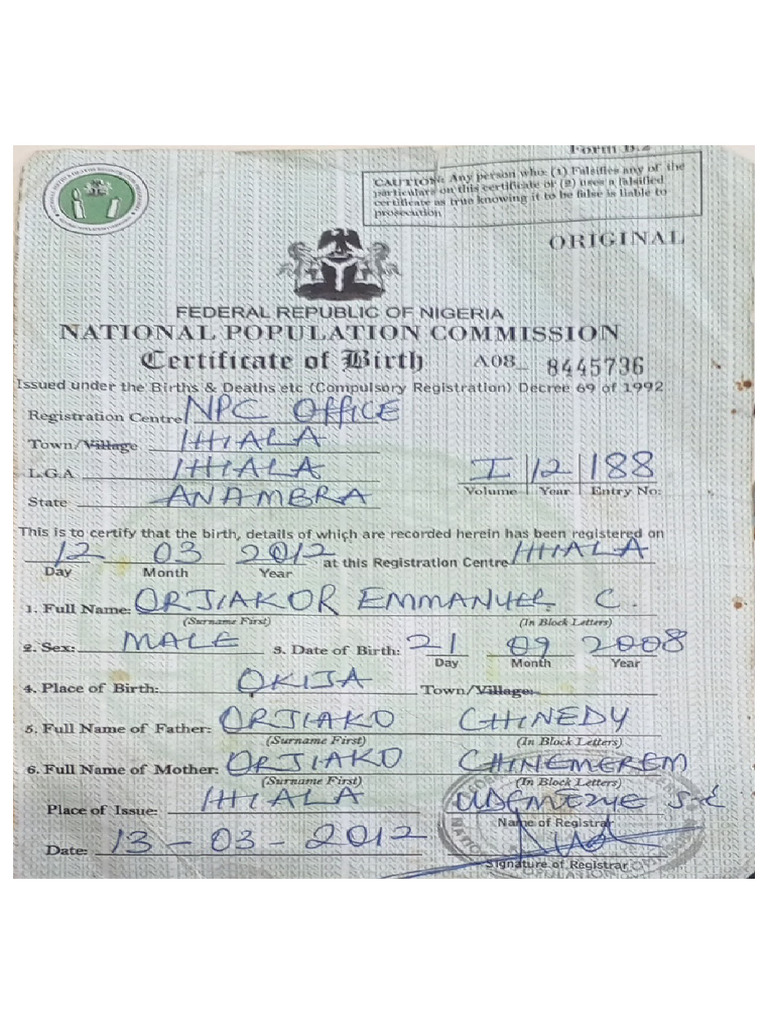 Form B.2
CAUTION: Any person who: (1) Falsifies any of the
particulars on this certificate or (2) uses a falsified
certificate as true knowing it to be false is liable to
prosecution
ORIGINAL
FEDERAL REPUBLIC OF NIGERIA
NATIONAL POPULATION COMMISSION
Certificate of Birth A08_ 8445736
Issued under the Births & Deaths etc (Compulsory Registration) Decree 69 of 1992
Registration Centre NPC OFFICE
Town/Village IHIALA
L.G.A IHIALA I 12 188
Volume Year Entry No:
State ANAMBRA
This is to certify that the birth, details of which are recorded herein has been registered on
12 03 2012 at this Registration Centre IHIALA
Day Month Year
1. Full Name: ORJIAKOR EMMANUEL C.
(Surname First) (In Block Letters)
2. Sex: MALE 3. Date of Birth: 21 09 2008
Day Month Year
4. Place of Birth: OKIJA Town/Village:
5. Full Name of Father: ORJIAKO CHINEDY
(Surname First) (In Block Letters)
6. Full Name of Mother: ORJIAKO CHINEMEREM
(Surname First) (In Block Letters)
Place of Issue: IHIALA
Name of Registrar
Date: 13-03-2012
Signature of Registrar